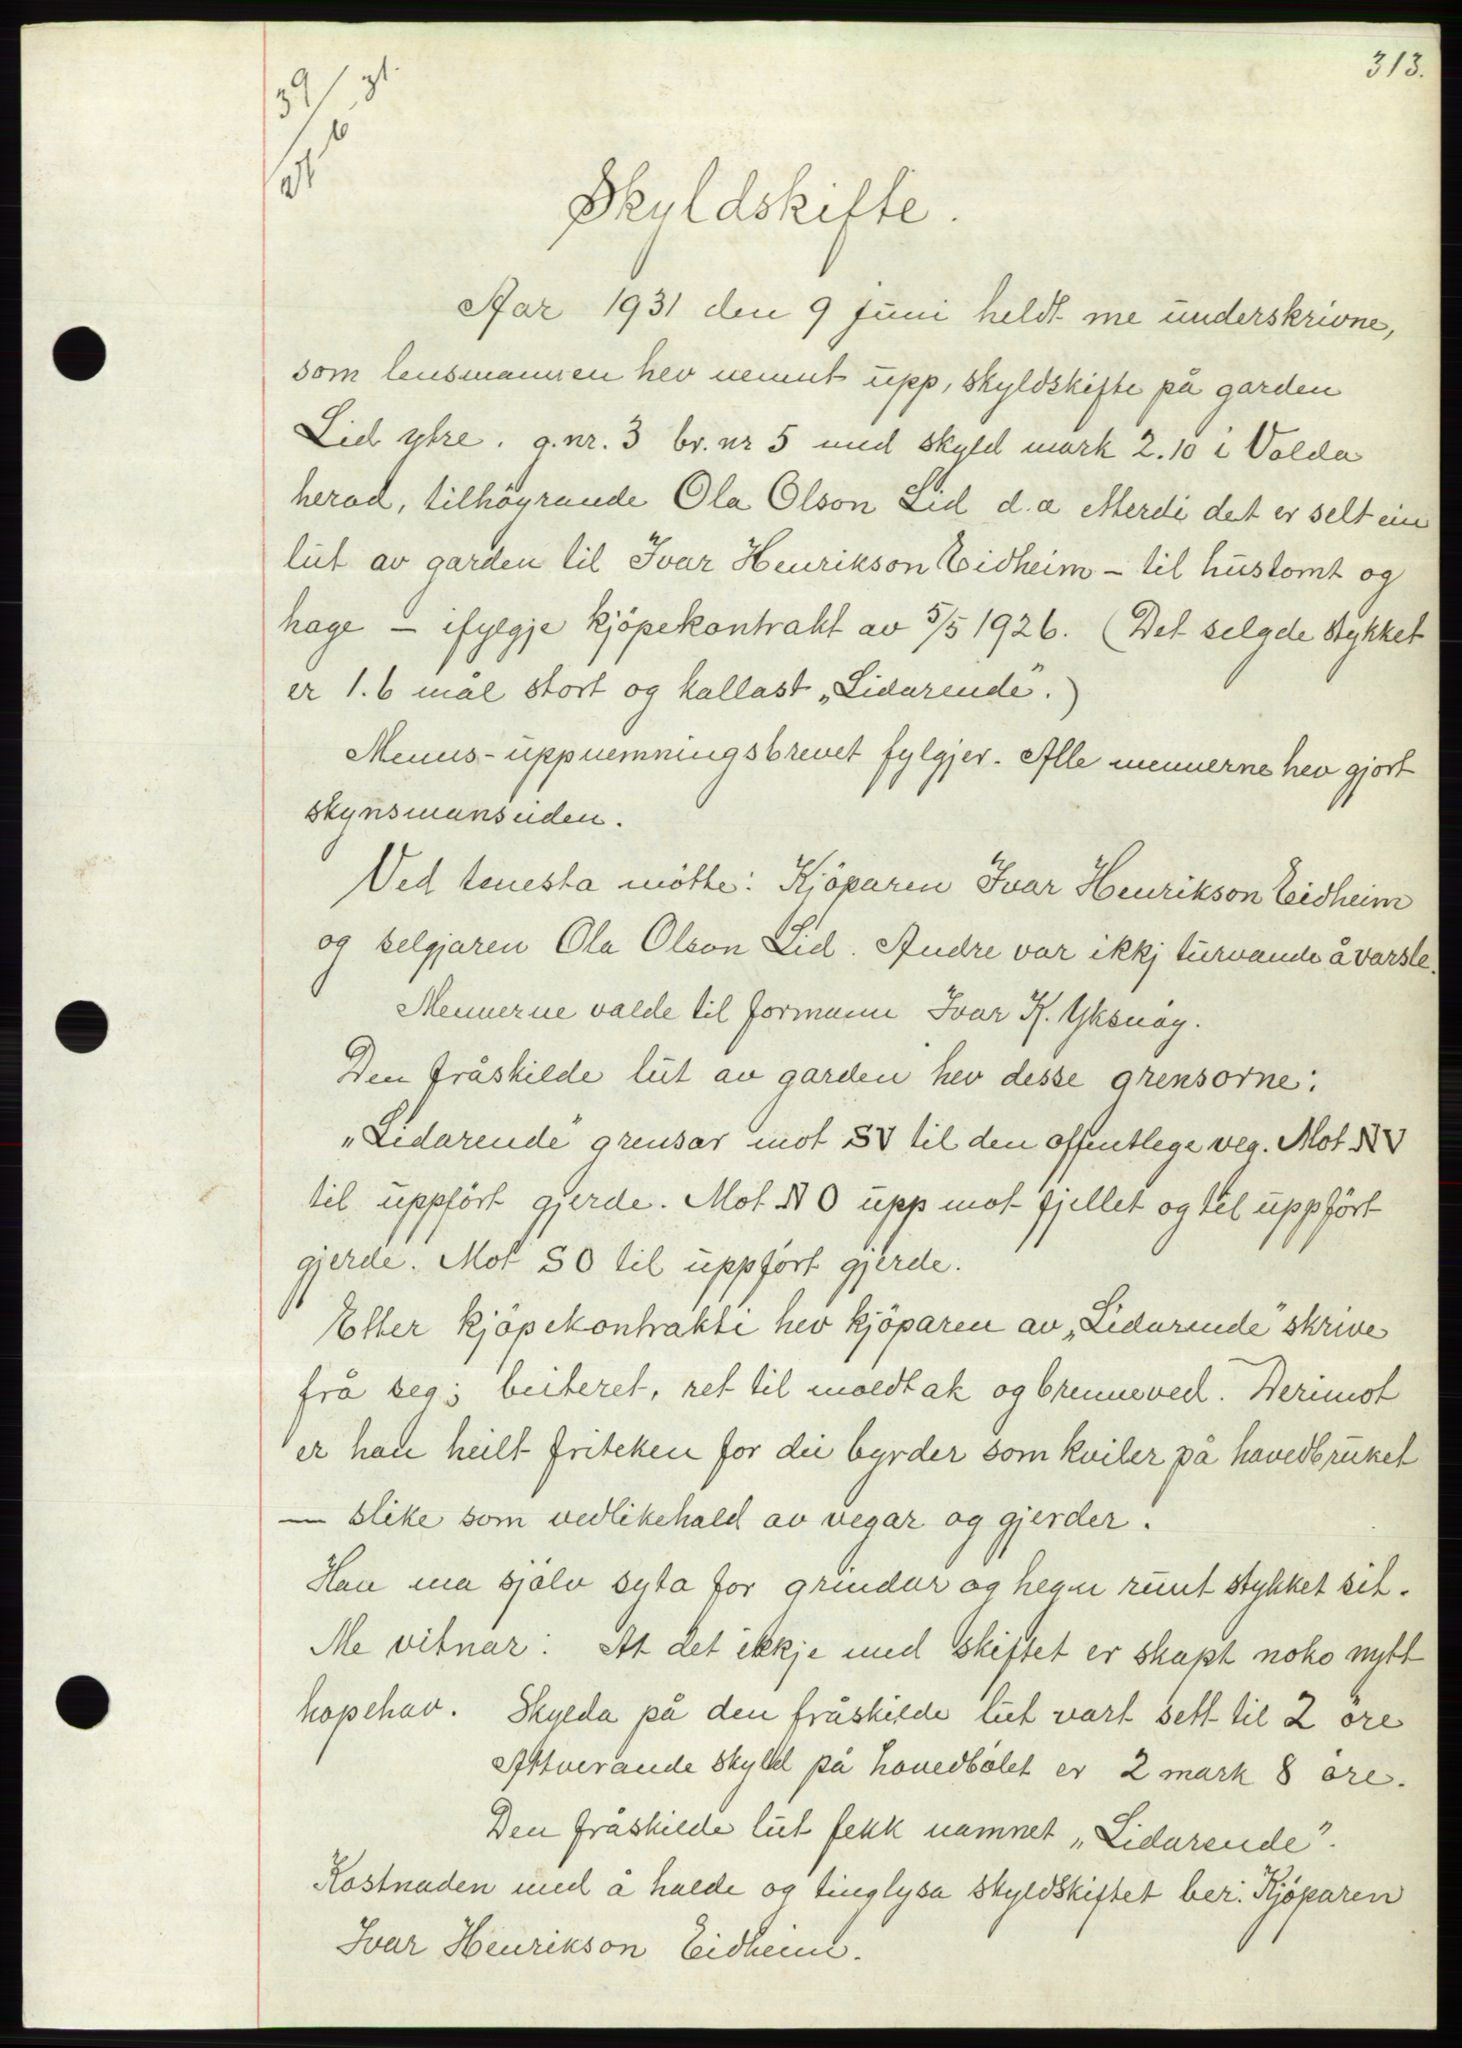 313.
39/
6 31.
Skyldskifte.
Aar 1931 den 9 juni heldt me underskrivne,
som lensmannen hev nemnt upp, skyldskifte på garden
Lid ytre. g.nr. 3 br. nr 5 med skyld mark 2.10 i Volda
herad, tilhøyrande Ola Olson Lid d.a etterdi det er selt ein
lut av garden til Ivar Henrikson Eidheim – til hustomt og
hage – ifylgje kjöpekontrakt av 5/5 1926. (Det selgde stykket
er 1.6 mål stort og kallast „Lidarende".)
Menns-uppnemningsbrevet fylgjer. Alle mennerne hev gjort
skynsmanseiden.
Ved tenesta mötte: Kjöparen Ivar Henrikson Eidheim
og selgjaren Ola Olson Lid. Andre var ikkj turvande å varsle.
Mennerne valde til formann Ivar K. Yksnöy.
Den fråskilde lut av garden hev desse grensorne:
„Lidarende" grensar mot SV til den offentlege veg. Mot NV
til uppfört gjerde. Mot N O upp mot fjellet og til uppfört
gjerde. Mot S O til uppfört gjerde.
Etter kjöpekontrakti hev kjöparen av „Lidarende" skrive
frå seg; beiteret, ret til moldtak og brenneved. Derimot
er han heilt friteken for dei byrder som kviler på hovedbruket
— slike som vedlikehald av vegar og gjerder.
Han ma sjölv syta for grindar og hegn runt stykket sit.
Me vitnar: At det ikkje med skiftet er skapt noko nytt
hopehav. Skylda på den fråskilde lut vart sett til 2 öre
Attverande skyld på hovedbölet er 2 mark 8 öre.
Den fråskilde lut fekk namnet „Lidarende".
Kostnaden med å halde og tinglysa skyldskiftet ber: Kjöparen
Ivar Henrikson Eidheim.